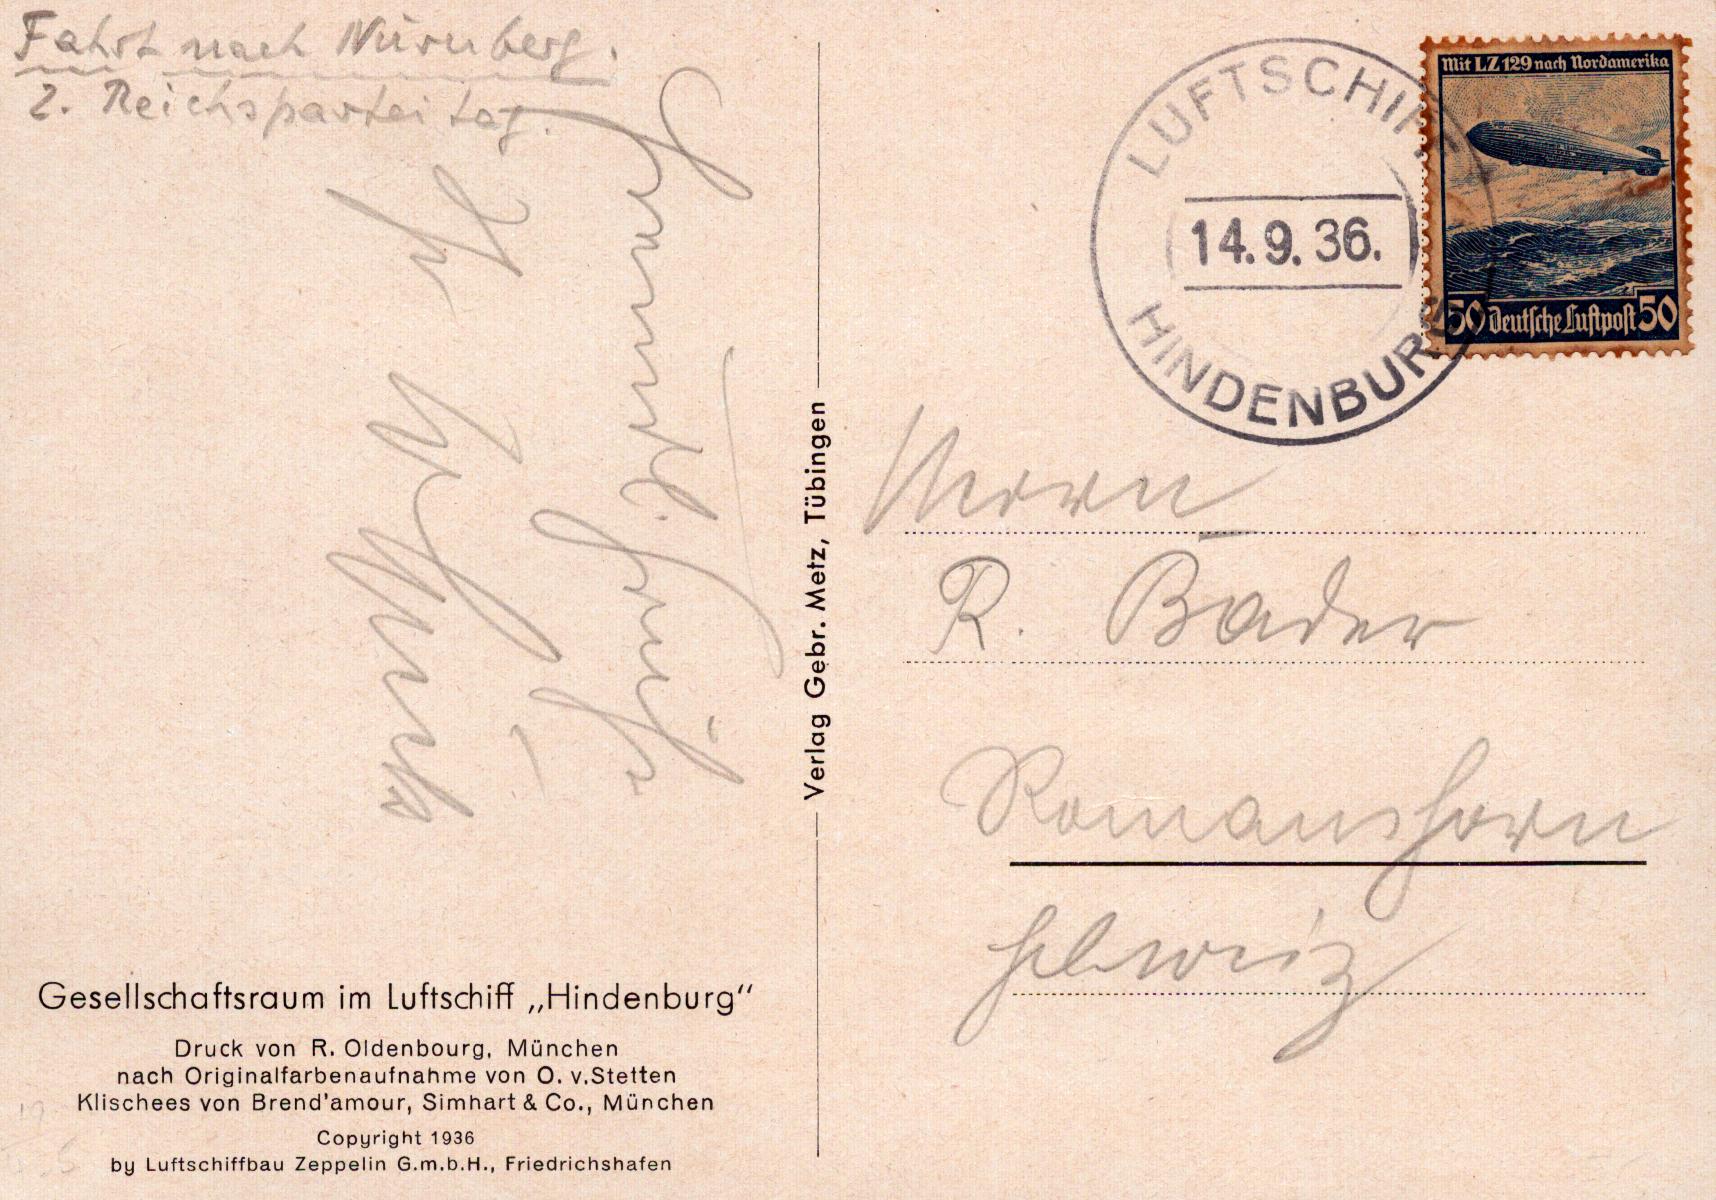 Fahrt nach Nürnberg.
z. Reichsparteitag.
LUFTSCHIFF
14.9.36.
HINDENBURG
Mit LZ 129 nach Nordamerika
50 Deutsche Luftpost 50
Verlag Gebr. Metz, Tübingen
Herrn
R. Bader
Romanshorn
Schweiz
Gesellschaftsraum im Luftschiff „Hindenburg“
Druck von R. Oldenbourg, München
nach Originalfarbenaufnahme von O. v. Stetten
Klischees von Brend'amour, Simhart & Co., München
Copyright 1936
by Luftschiffbau Zeppelin G.m.b.H., Friedrichshafen